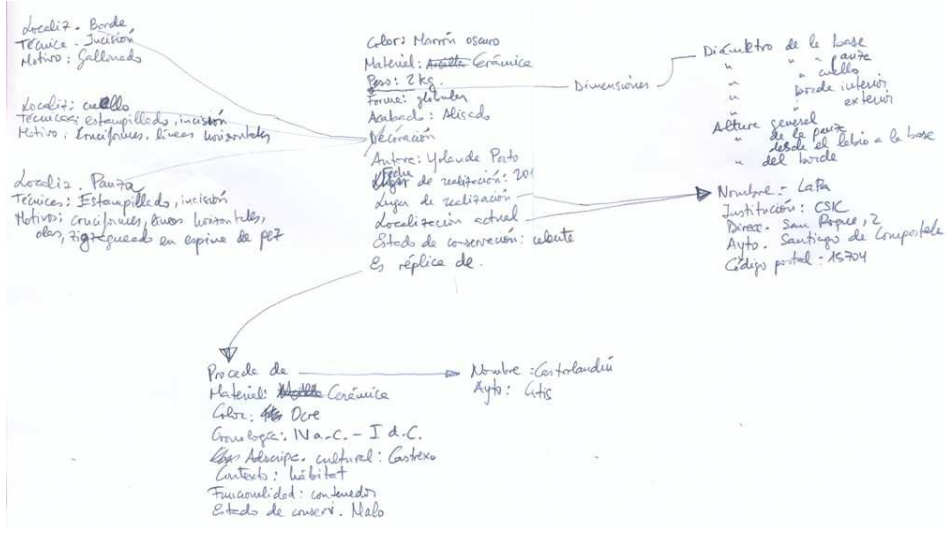 Localiz. Borde
Técnica. Incisión
Motivo: Gallonado
Localiz: cuello
Técnicas: estampillado, incisión
Motivo: Cruciformes, líneas horizontales
Localiz. Panza
Técnicas: Estampillado, incisión
Motivos: cruciformes, líneas horizontales,
olas, zigzagueado en espina de pez
Color: Marrón oscuro
Material: Arcilla Cerámica
Peso: 2 kg.
Forma: globular
Acabado: Alisado
Decoración
Autora: Yolanda Porto
Fecha de realización: 201
Lugar de realización
Localización actual
Estado de conservación:
Es réplica de.
Dimensiones
Diámetro de la base
" " panza
" " cuello
" borde interior
" exterior
Altura general
" de la panza
" desde el labio a la base
del borde
Nombre: - LaPa
Institución: CSIC
Direcc. San Roque, 2
Ayto. Santiago de Compostela
Código postal: 15704
Procede de
Material: Arcilla Cerámica
Color: Ocre
Cronología: IV a.C. - I d.C.
Adscripc. cultural: Castrexo
Contexto: hábitat
Funcionalidad: contenedor
Estado de conserv. Malo
Nombre: Castrolandín
Ayto: Cutis